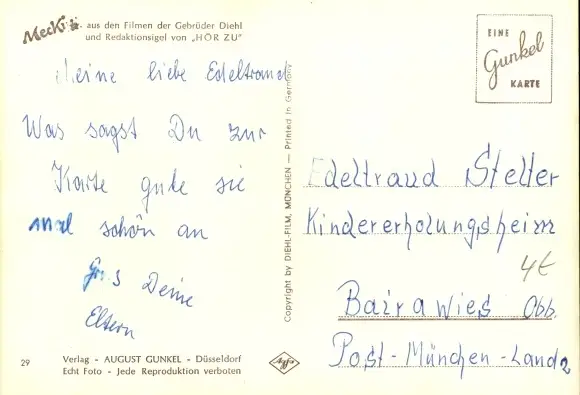 Mecki aus den Filmen der Gebrüder Diehl
und Redaktionsigel von „HÖR ZU"
Meine liebe Edeltraud
Was sagst Du zur
Karte gute sie
mal schön an
Gruß Deine
Eltern
29
Verlag - AUGUST GUNKEL - Düsseldorf
Echt Foto - Jede Reproduktion verboten
Agfa
Copyright by DIEHL-FILM, MÜNCHEN — Printed in Germany
EINE
Gunkel
KARTE
Edeltraud Steller
Kindererholungsheim
4€
Bairawies Obb.
Post-München-Land 2